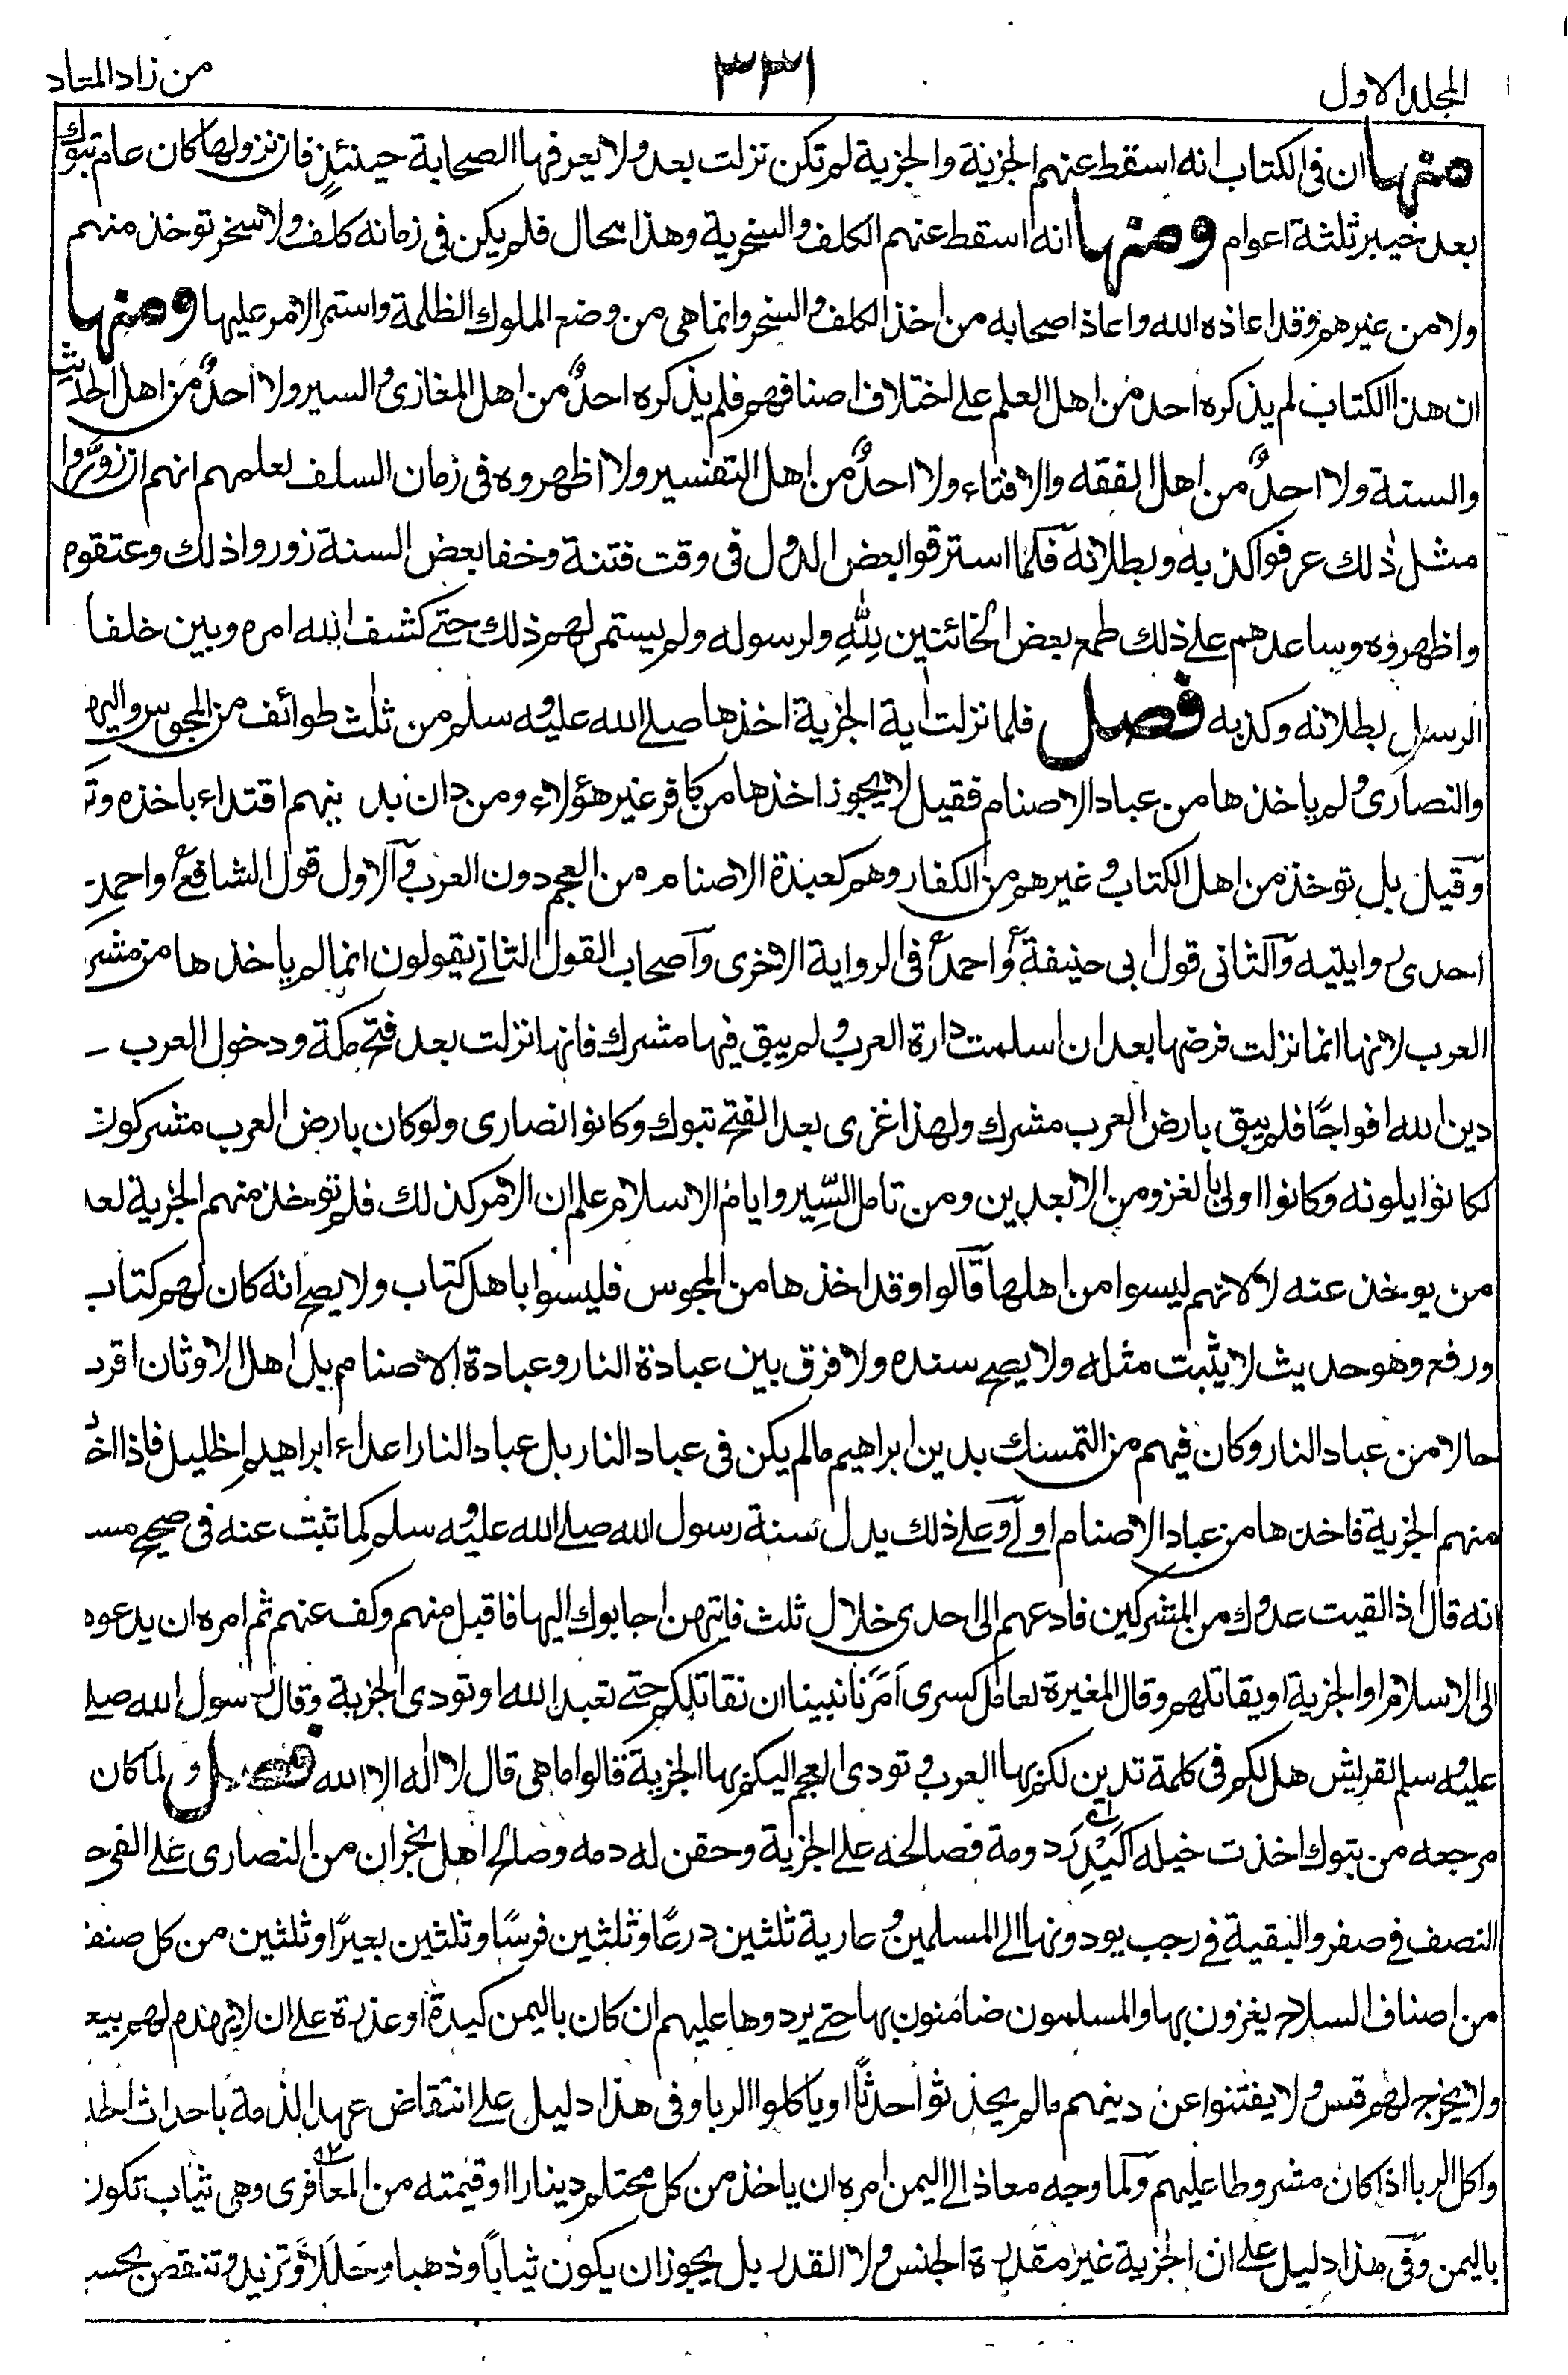 المجلد الاول
٣٣١
من زاد المعاد
منها ان فى الكتاب انه اسقط عنهم الجزية والجزية لم تكن نزلت بعد ولا يعرفها الصحابة حينئذٍ فان نزولها كان عام تبوك
بعد خيبر ثلثة اعوام ومنها انه اسقط عنهم الكلف والسخرية وهذا محال فلم يكن فى زمانه كلف ولا سخر توخذ منهم
ولا من غيرهم وقد اعاذه الله واعاذ اصحابه من اخذ الكلف والسخر وانما هى من وضع الملوك الظلمة واستمر الامر عليها ومنها
ان هذا الكتاب لم يذكره احد من اهل العلم على اختلاف اصنافهم فلم يذكره احدٌ من اهل المغازى والسير ولا احدٌ من اهل الحديث
والسنة ولا احدٌ من اهل الفقه والافتاء ولا احدٌ من اهل التفسير ولا اظهروه فى زمان السلف لعلمهم انهم ان زوَّروا
مثل ذلك عرفوا كذبه وبطلانه فلما استرقوا بعض الدول فى وقت فتنة وخفا بعض السنة زوروا ذلك وعتقوه
واظهروه وساعدهم على ذلك طمع بعض الخائنين لِلّٰهِ ولرسوله ولم يستمر لهم ذلك حتى كشف الله امره وبين خلفا
الرسل بطلانه وكذبه فصل فلما نزلت اية الجزية اخذها صلى الله عليه وسلم من ثلث طوائف من المجوس واليه
والنصارى ولم ياخذها من عباد الاصنام فقيل لا يجوز اخذها من كافر غير هؤلاء ومن دان بدينهم اقتداء باخذه وتر
وقيل بل توخذ من اهل الكتاب وغيرهم من الكفار وهم كعبدة الاصنام من العجم دون العرب والاول قول الشافعى واحمد
احدى روايتيه والثانى قول ابى حنيفة واحمد فى الرواية الاخرى وآصحاب القول الثانى يقولون انما لم ياخذها من مشر
العرب لانها انما نزلت فرضها بعد ان اسلمت دارة العرب ولم يبق فيها مشرك فانها نزلت بعد فتح مكة ودخول العرب
دين الله افواجًا فلم يبق بارض العرب مشرك ولهذا غزى بعد الفتح تبوك وكانوا نصارى ولو كان بارض العرب مشركون
لكانوا يلونه وكانوا اولى بالغزو من الابعدين ومن تامل السِّير وايام الاسلام علم ان الامر كذلك فلم توخذ منهم الجزية لعد
من يوخذ عنه لا لانهم ليسوا من اهلها قالوا وقد اخذها من المجوس فليسوا باهل كتاب ولا يصح انه كان لهم كتاب
ورفع وهو حديث لا يثبت مثله ولا يصح سنده ولا فرق بين عبادة النار وعبادة الاصنام بل اهل الاوثان اقرب
حالا من عباد النار وكان فيهم من التمسك بدين ابراهيم ما لم يكن فى عباد النار بل عباد النار اعداء ابراهيم الخليل فاذا اخذ
منهم الجزية فاخذها من عباد الاصنام اولى وعلى ذلك يدل سنة رسول الله صلى الله عليه وسلم كما ثبت عنه فى صحيح مس
انه قال اذا لقيت عدوك من المشركين فادعهم الى احدى خلال ثلث فايتهن اجابوك اليها فاقبل منهم وكف عنهم ثم امره ان يدعوه
الى الاسلام او الجزية او يقاتلهم وقال المغيرة لعامل كسرى اَمَرَنا نبينا ان نقاتلكم حتى تعبدوا الله او تودى الجزية وقال رسول الله صلى
عليه وسلم لقريش هل لكم فى كلمة تدين لكم بها العرب وتودى العجم اليكم بها الجزية قالوا ما هى قال لا اله الا الله فصل ولما كان
مرجعه من تبوك اخذت خيله اكَيْدِر دومة فصالحه على الجزية وحقن له دمه وصالح اهل نجران من النصارى على الفى ح
النصف فى صفر والبقية فى رجب يودونها الى المسلمين وعارية ثلثين درعًا وثلثين فرسًا وثلثين بعيرًا وثلثين من كل صنف
من اصناف السلاح يغزون بها والمسلمون ضامنون بها حتى يردوها عليهم ان كان باليمن كيدة او غدرة على ان لا يهدم لهم بيعة
ولا يخرج لهم قس ولا يفتنوا عن دينهم ما لم يحدثوا حدثًا او ياكلوا الربا وفى هذا دليل على انتقاض عهد الذمة باحداث الحد
واكل الربا اذا كان مشروطا عليهم ولما وجه معاذ الى اليمن امره ان ياخذ من كل محتلم دينارا او قيمته من المعافرى وهى ثياب تكون
باليمن وفى هذا دليل على ان الجزية غير مقدرة الجنس ولا القدر بل يجوز ان يكون ثيابًا وذهبا وحللًا وتزيد وتنقص بحسب